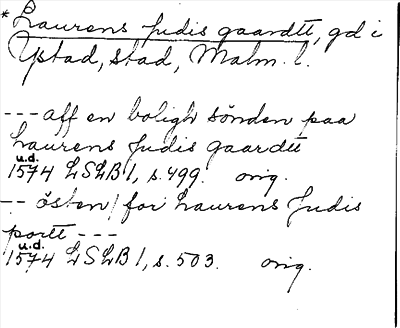 * Laurens Judis gaardtt, gd i
Ystad, stad, Malm. l.
--- aff en boligh sönden paa
Laurens Judis gaardtt
u.d.
1574 LSLB 1, s. 499. orig.
-- östen/for Laurens Judis
portt ---
u.d.
1574 LSLB 1, s. 503. orig.